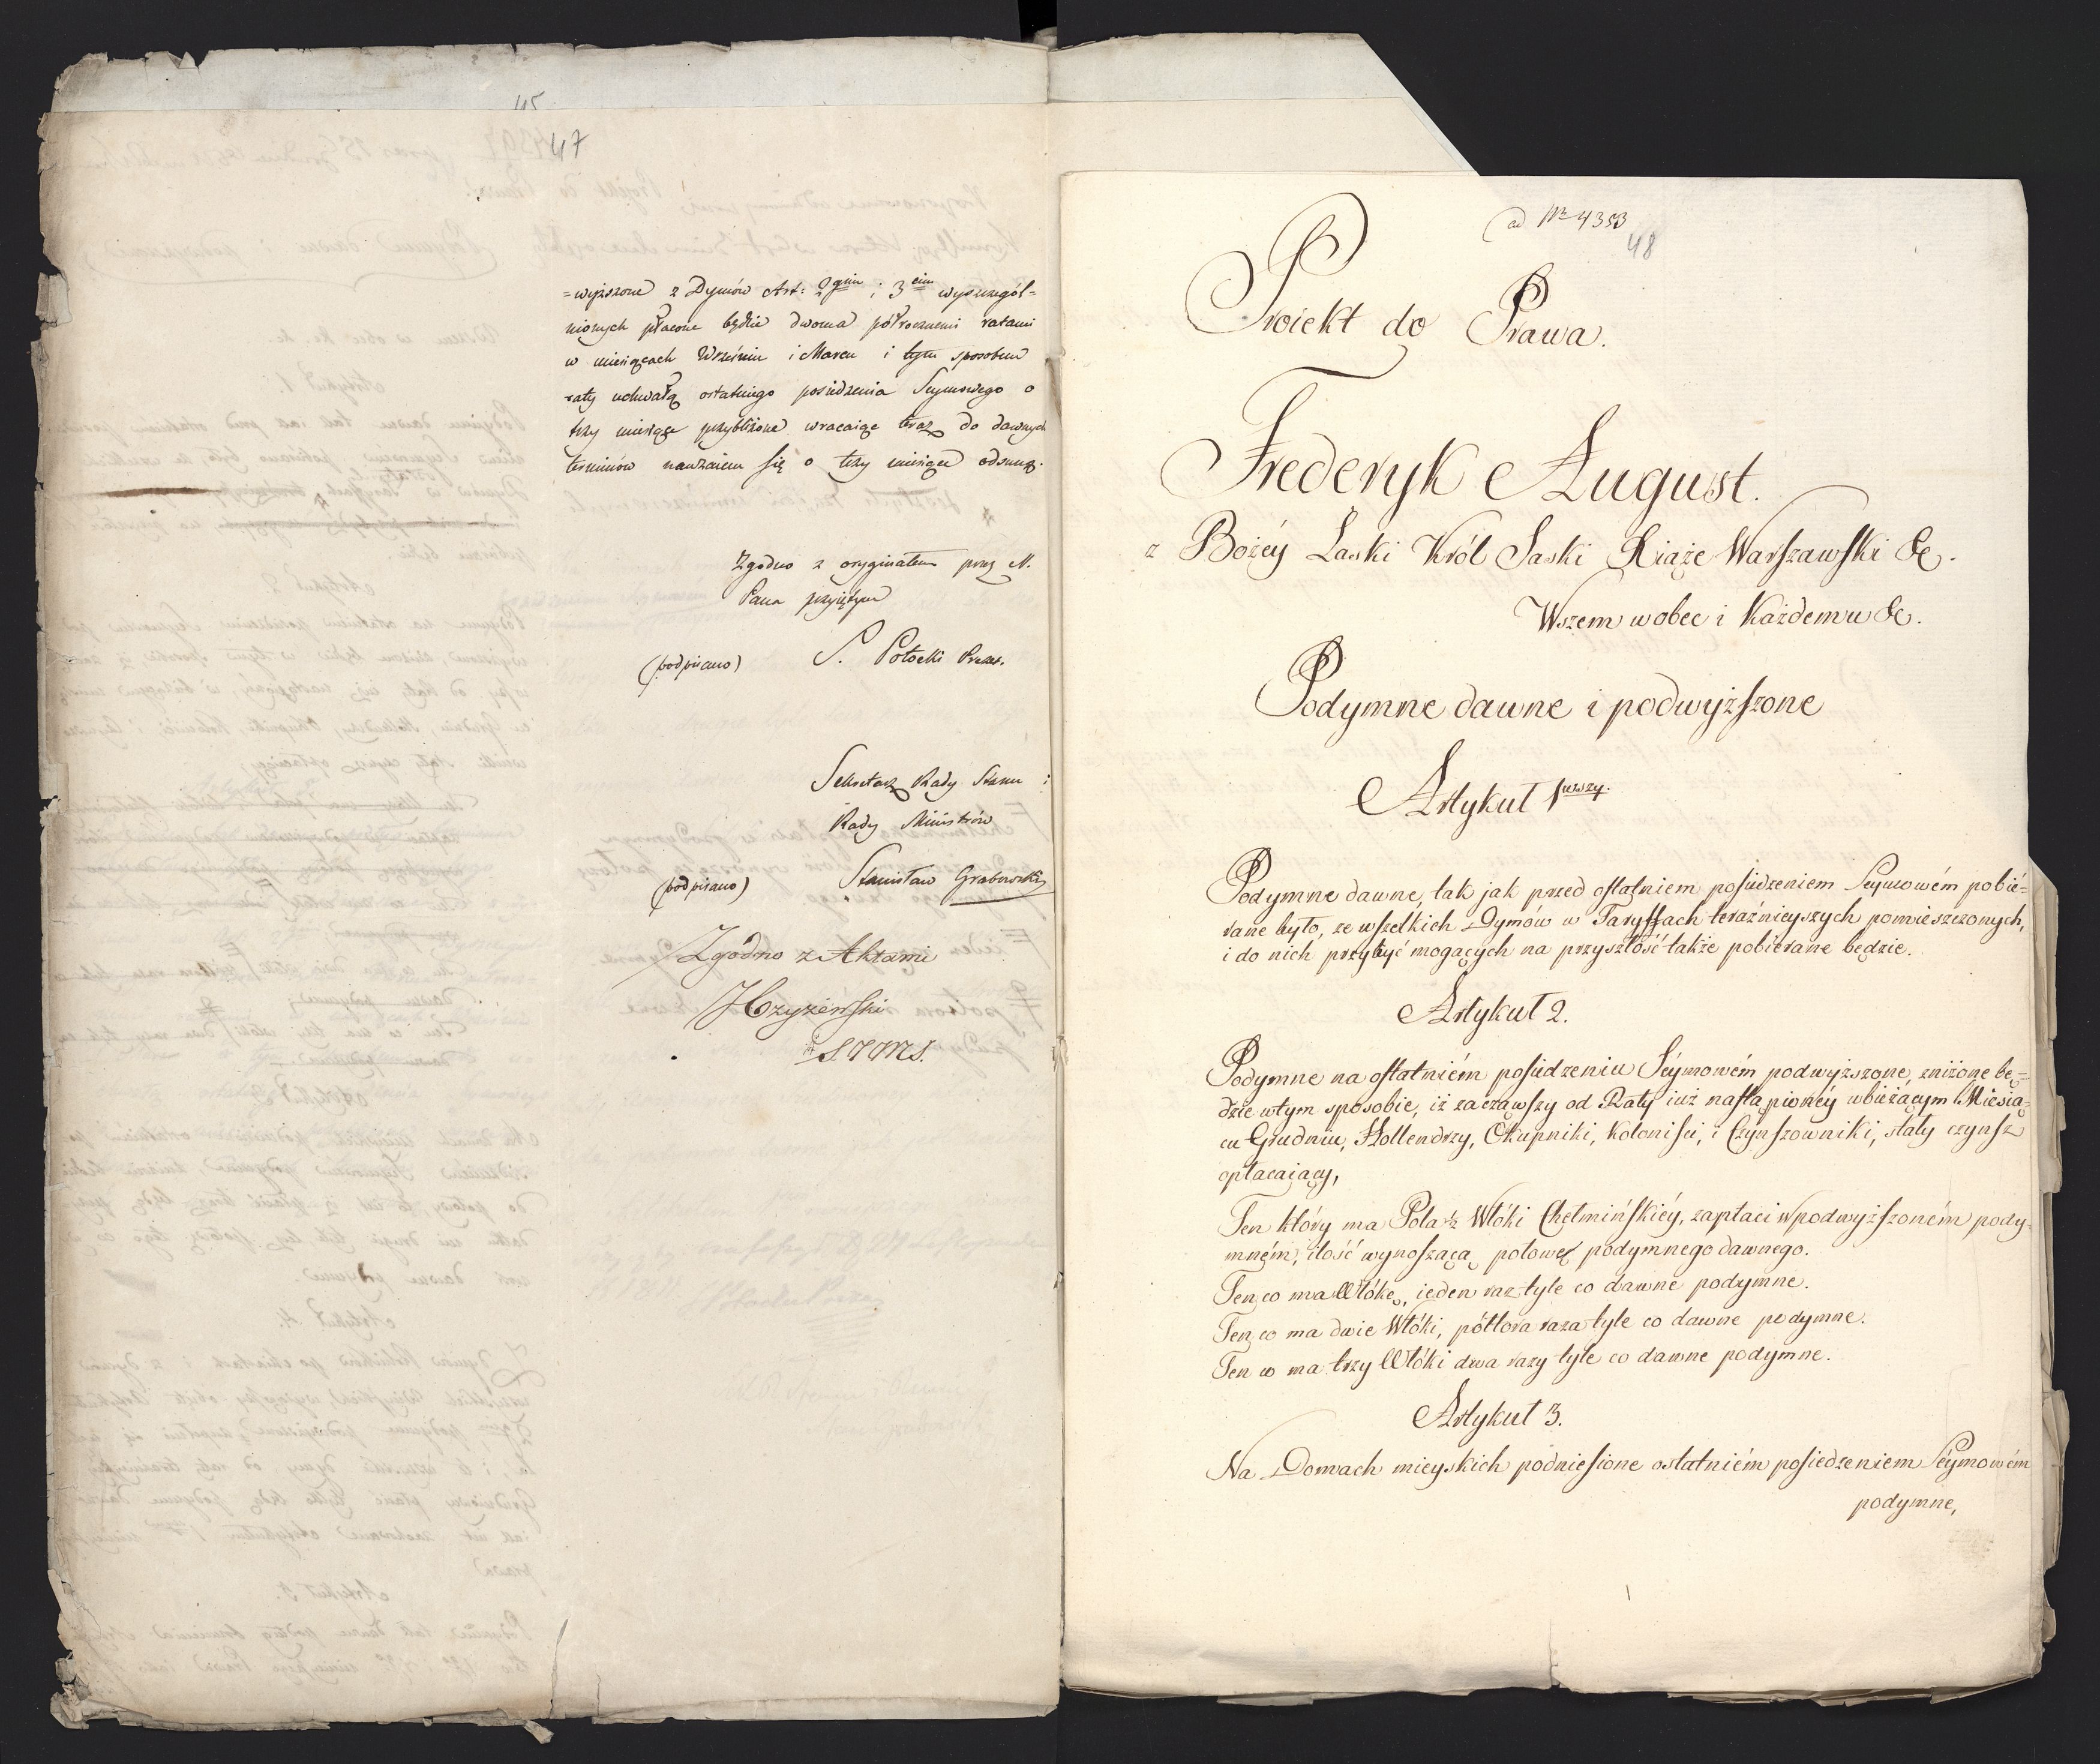 45
47
=wyższone z Dymów Art: 2gim i 3cim wyszczegól=
nionych płacone będzie dwoma półrocznemi ratami
w miesiącach Wrześniu i Marcu i tym sposobem
raty uchwałą ostatniego posiedzenia Seymowego o
trzy miesiące przybliżone wracaiąc teraz do dawnych
terminów nawzaiem się o trzy miesiące odsuną.
Zgodno z oryginałem przez N.
Pana przyiętym
(podpisano) S. Potocki Prezes.
Sekretarz Rady Stanu i
Rady Ministrów
(podpisano) Stanisław Grabowski
Zgodno z Aktami
ad Nr 4353
48
Proiekt do Prawa.
Frederyk August.
z Bożéy Laski Król Saski Xiąże Warszawski &c.
Wszem wobec i Każdemu &c.
Podymne dawne i podwyższone
Artykuł 1wszy.
Podymne dawne, tak jak przed ostatniem posiedzeniem Seymowém pobié=
rane było, ze wszelkich Dymów w Taryffach teraźnieyszych pomieszczonych,
i do nich przybyć mogących na przyszłość także pobierane będzie.
Artykuł 2.
Podymne na ostatniém posiedzeniu Séymowém podwyższone, zniżone bę=
dzie wtym sposobie, iż zacząwszy od Raty iuż nastąpionéy wbieżącym Miesią=
cu Grudniu, Hollendrzy, Okupniki, Koloniści, i Czynszowniki, stały czynsz
opłacaiący,
Ten który ma Pola ½ Włóki Chełmińskiéy, zapłaci w podwyższoném pody=
mném, ilość wynoszącą połowę podymnego dawnego.
Ten co ma Włókę, ieden raz tyle co dawne podymne.
Ten co ma dwie Włóki, półtora raza tyle co dawne podymne.
Ten co ma trzy Włóki dwa razy tyle co dawne podymne.
Artykuł 3.
Na Domach mieyskich podniesione ostatniém posiedzeniem Séymowém
podymne,